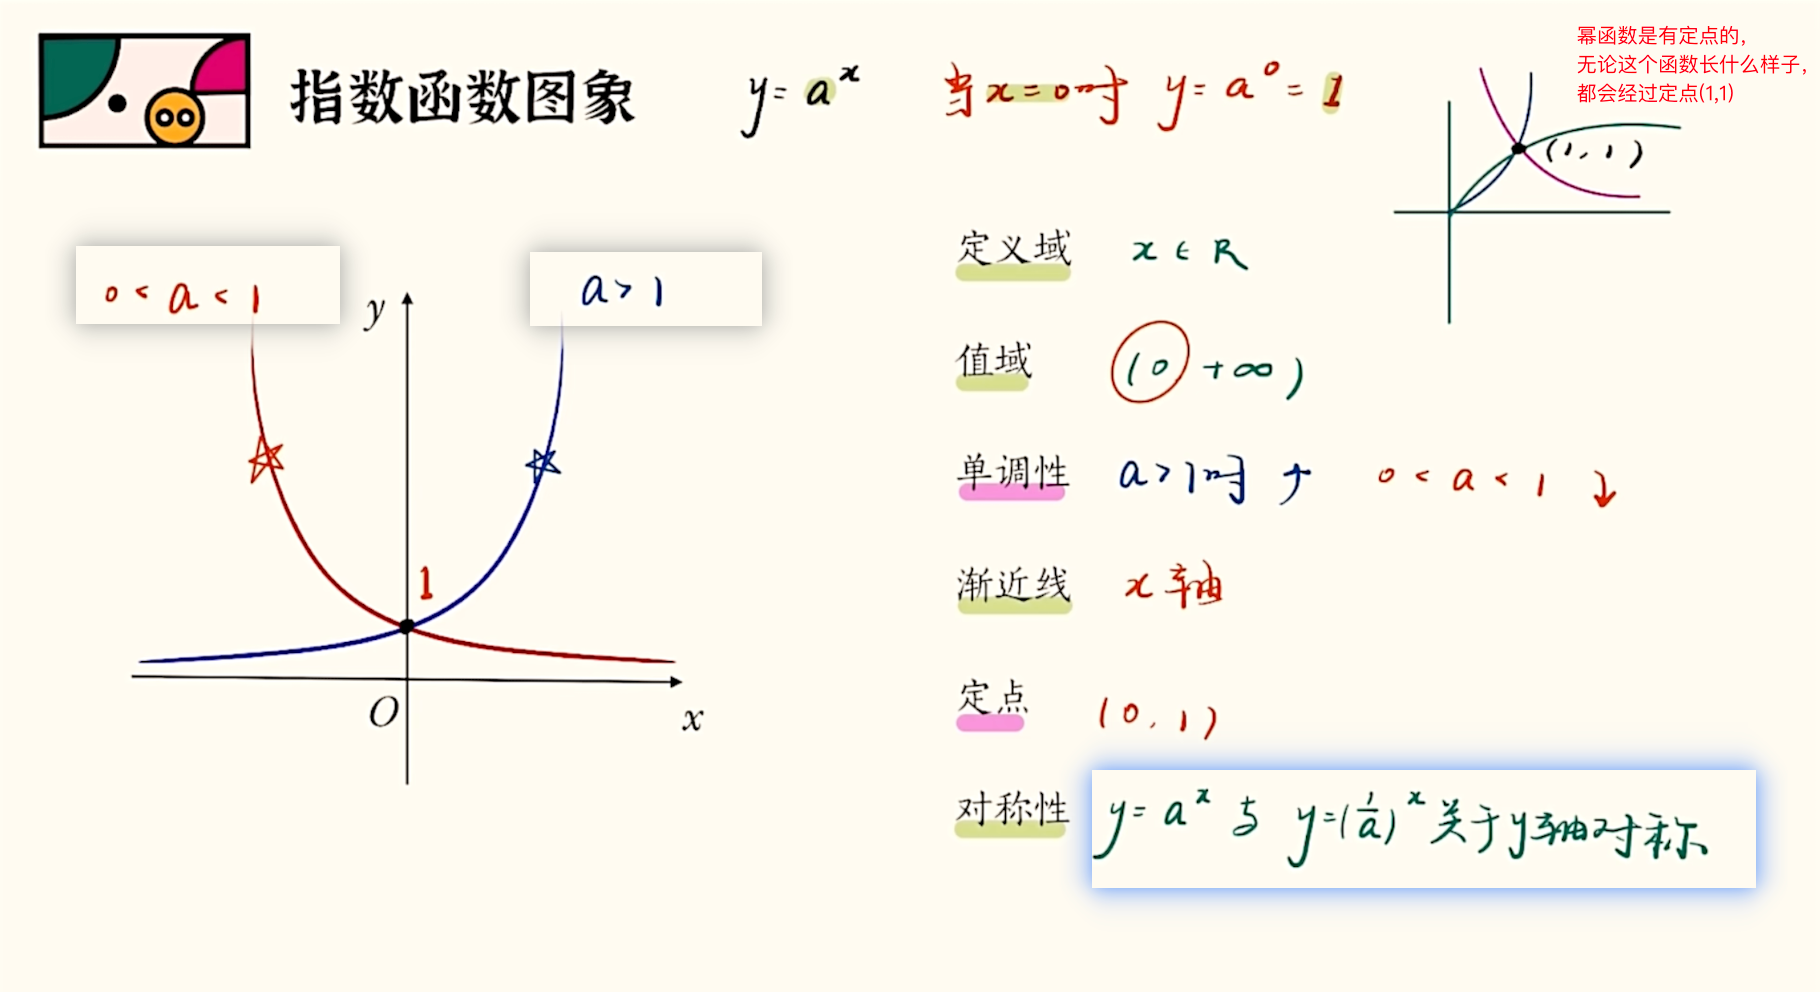 指数函数图象 y=aˣ 当x=0时 y=a⁰=1
幂函数是有定点的,
无论这个函数长什么样子,
都会经过定点(1,1)
(1,1)
0<a<1
a>1
y
1
O
x
定义域 x∈R
值域 (0 +∞)
单调性 a>1时 ↗ 0<a<1 ↘
渐近线 x轴
定点 (0,1)
对称性 y=aˣ与 y=(1/a)ˣ关于y轴对称